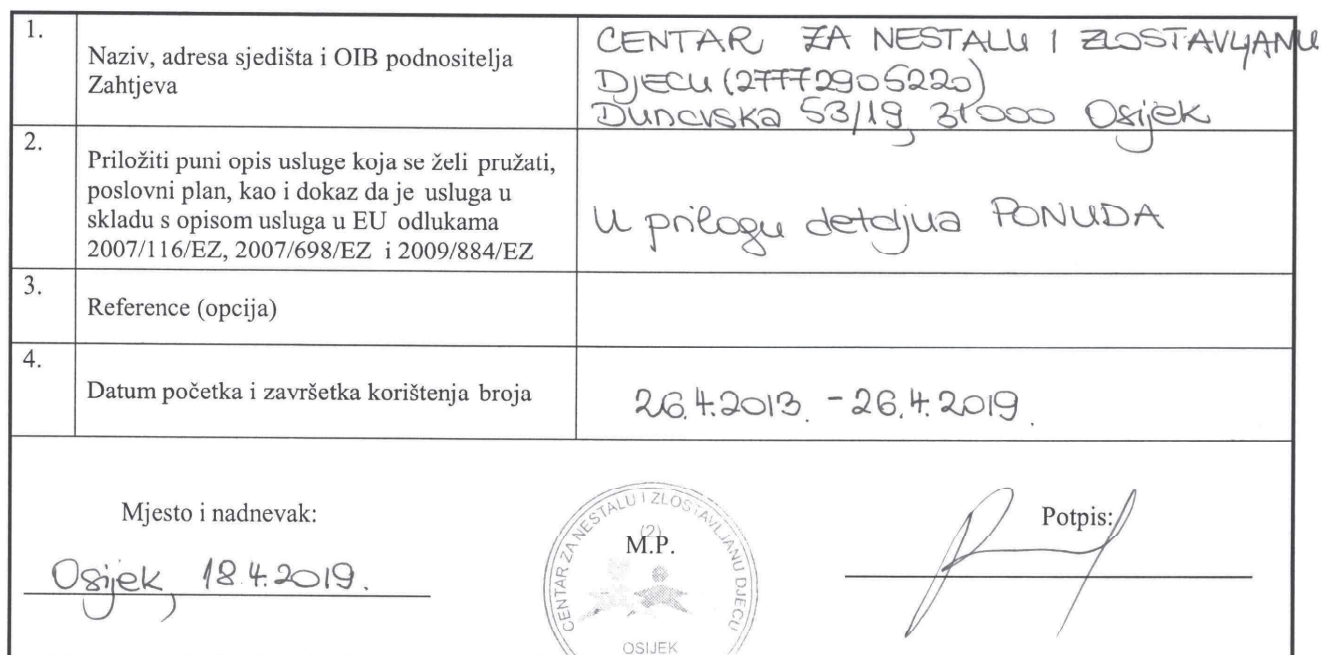 1.
Naziv, adresa sjedišta i OIB podnositelja
Zahtjeva
CENTAR ZA NESTALU I ZLOSTAVLJANU
DJECU (27772905220)
Dunavska 53/19, 31000 Osijek
2.
Priložiti puni opis usluge koja se želi pružati,
poslovni plan, kao i dokaz da je usluga u
skladu s opisom usluga u EU odlukama
2007/116/EZ, 2007/698/EZ i 2009/884/EZ
U prilogu detaljna PONUDA
3.
Reference (opcija)
4.
Datum početka i završetka korištenja broja
26.4.2013. - 26.4.2019.
Mjesto i nadnevak:
Osijek, 18.4.2019.
CENTAR ZA NESTALU I ZLOSTAVLJANU DJECU
(2)
M.P.
OSIJEK
Potpis: